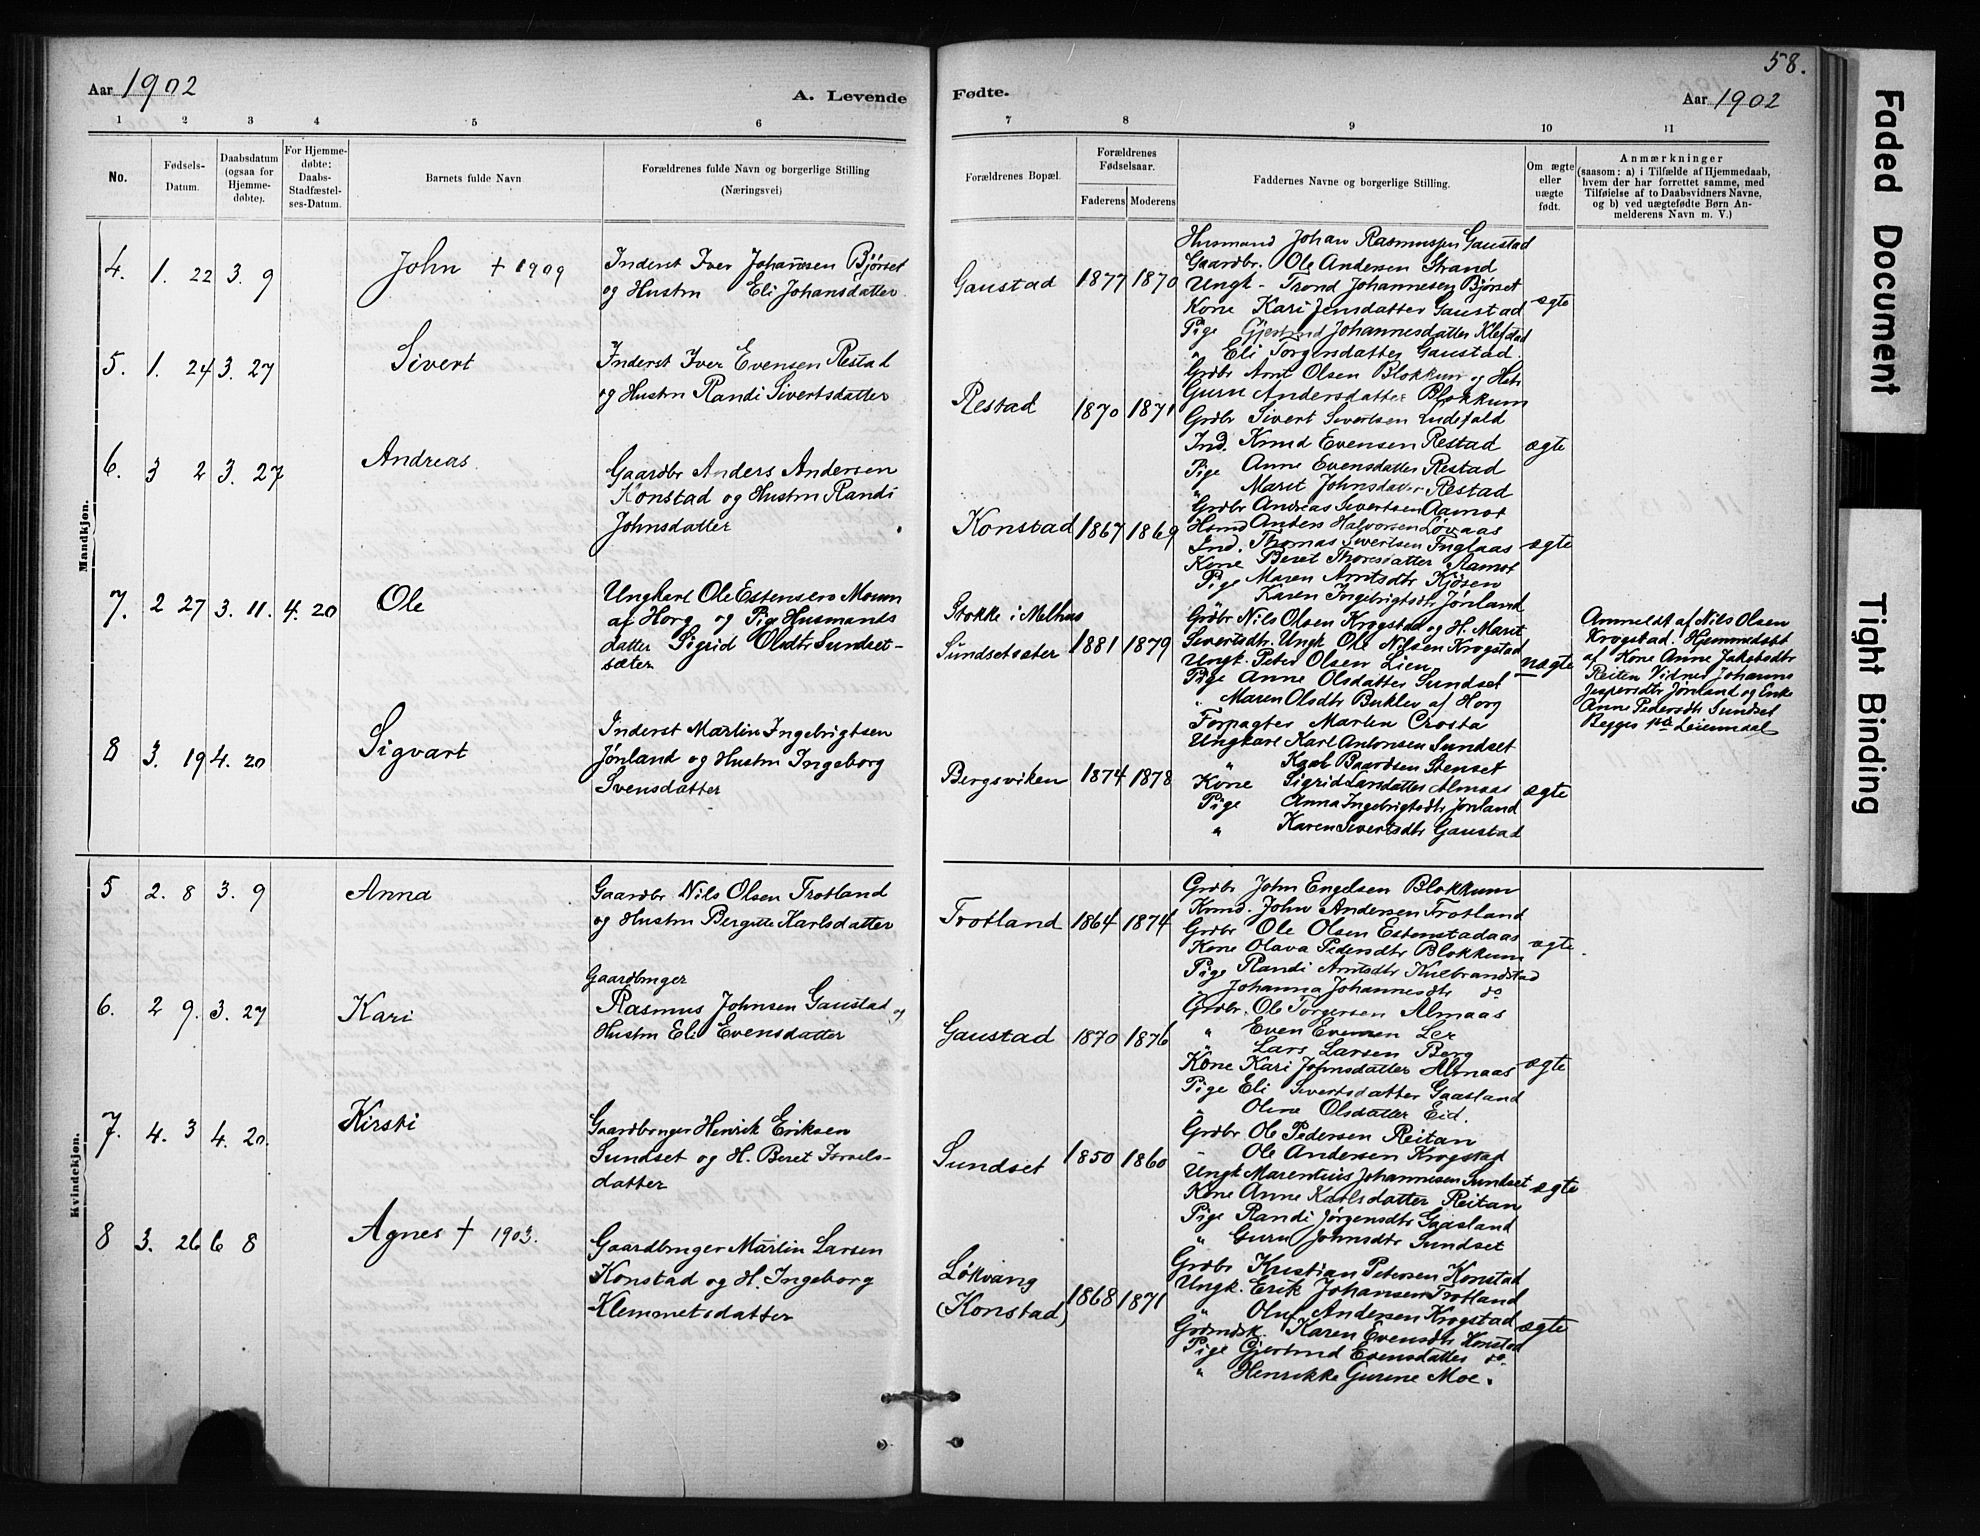 58.
Aar 1902
A. Levende
Fødte.
Aar 1902
1 2 3 4 5 6 7 8 9 10 11
No.
Fødsels-
Datum.
Daabsdatum
(ogsaa for
Hjemme-
døbte).
For Hjemme-
døbte:
Daabs-
Stadfæstel-
ses-Datum.
Barnets fulde Navn
Forældrenes fulde Navn og borgerlige Stilling
(Næringsvei)
Forældrenes Bopæl.
Forældrenes
Fødselsaar.
Faderens Moderens
Faddernes Navne og borgerlige Stilling.
Om ægte
eller
uægte
født.
Anmærkninger
(saasom: a) i Tilfælde af Hjemmedaab,
hvem der har forrettet samme, med
Tilføielse af to Daabsvidners Navne,
og b) ved uægtefødte Børn An-
melderens Navn m. V.)
Mandkjøn.
4. 1. 22 3. 9
John + 1909
Inderst Iver Johansen Bjørset
og Hustru Eli Johansdatter
Gaustad 1877 1870
Husmand Johan Rasmussen Gaustad
Gaardbr. Ole Andersen Strand
Ungk. Trond Johannesen Bjørset
Kone Kari Jensdatter Gaustad
Pige Gjertrud Johannesdatter Kletstad
" Eli Torgersdatter Gaustad
ægte
5. 1. 24 3. 27
Sivert
Inderst Iver Evensen Restad
og Hustru Randi Sivertsdatter
Restad 1870 1871
Grdbr Arnt Olsen Blokkum og Hstr
Guru Andersdatter Blokkum
Grdbr Sivert Sivertsen
Ind. Knud Evensen Restad
Pige Anne Evensdatter Restad
" Marit Johnsdatter Restad
ægte
6. 3 2 3. 27
Andreas
Gaardbr Anders Andersen
Konstad og Hustru Randi
Johnsdatter
Konstad 1867 1869
Grdbr Andreas Sivertsen Aamot
Hsmd Anders Halvorsen Løvaas
Ind. Thomas Sivertsen Fuglaas
Kone Beret Thoresdatter Aamot
Pige Maren Arntsdtr Kjøsen
Karen Ingebrigtsdtr Jønland
ægte
7. 2 27 3. 11. 4. 20
Ole
Ungkarl Ole Estensen Moum
af Horg og Pige Husmands
datter Sigrid Olsdtr Sundset-
sæter
Stokke i Melhus
Sundsetsæter 1881 1879
Grdbr Nils Olsen Krogstad og H. Marit
Sivertsdtr. Ungk Ole Nilsen Krogstad
Ungk. Peter Olsen Lien
Pige Anne Olsdatter Sundset
" Maren Olsdtr Buklev af Horg
Forpagter Martin Crosta
uægte
Anmeldt af Nils Olsen
Krogstad. Hjemmedøbt
af Kone Anne Jakobsdtr
Reiten Vidner Johanna
Jespersdtr Jønland og Enke
Anne Pedersdtr Sundset
8 3. 19 4. 20
Sigvart
Inderst Martin Ingebrigtsen
Jønland og Hustru Ingeborg
Svensdatter
Bergsviken 1874 1878
Ungkarl Karl Antonsen Sundset
" Karl Baardsen Stenset
Kone Sigrid Larsdatter Almaas
Pige Anna Ingebrigtsdtr Jønland
" Karen Sivertsdtr Gaustad
ægte
Kvindekjøn.
5 2. 8 3. 9
Anna
Gaardbr Nils Olsen Trotland
og Hustru Bergitte Karlsdatter
Trotland 1864 1874
Grdbr John Engelsen Blokkum
John Andersen Trotland
Grdbr Ole Olsen Estenstadaas
Kone Olava Pedersdtr Blokkum
Pige Randi Arntsdtr Kulbrandstad
" Johanna Johannesdtr do
ægte
6. 2 9. 3. 27
Kari
Gaardbruger
Rasmus Johnsen Gaustad og
Hustru Eli Evensdatter
Gaustad 1870 1876
Grdbr. Ole Torgersen Almaas
" Even Evensen Ler
" Lars Larsen Berg
Kone Kari Johnsdatter Almaas
Pige Eli Sivertsdatter Gaasland
" Oline Olsdatter Eid.
ægte
7. 4. 3 4. 20.
Kirsti
Gaardbruger Henrik Eriksen
Sundset og H. Beret Israels-
datter
Sundset 1850 1860
Grdbr Ole Pedersen Reitan
" Ole Andersen Krogstad
Ungk Marentius Johannesen Sundset
Kone Anne Karlsdatter Reitan
Pige Randi Jørgensdtr Gaasland
" Guru Johnsdtr Sundset
ægte
8 3. 26 6 8
Agnes + 1903.
Gaardbruger Martin Larsen
Konstad og H. Ingeborg
Klemmetsdatter
Løkvang
(Konstad) 1868 1871
Grdbr Kristian Petersen Konstad
Ungk. Erik Johansen Trotland
" Oluf Andersen Krogstad
Karen Evensdtr Konstad
Pige Gjertrud Evensdatter do.
" Henrikke Gurine Moe.
ægte
Faded Document
Tight Binding